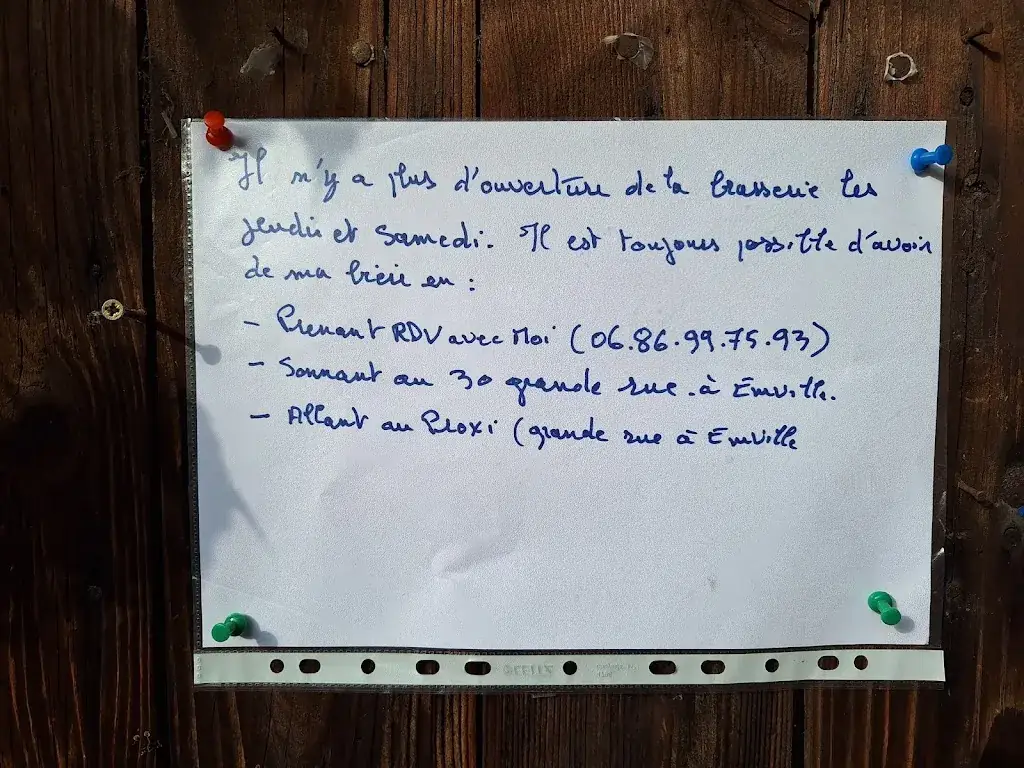 Il n'y a plus d'ouverture de la brasserie les
jeudi et Samedi. Il est toujours possible d'avoir
de ma bière en :
- Prenant RDV avec Moi (06.86.99.75.93)
- Sonnant au 30 grande rue à Emville.
- Allant au Proxi (grande rue à Emville